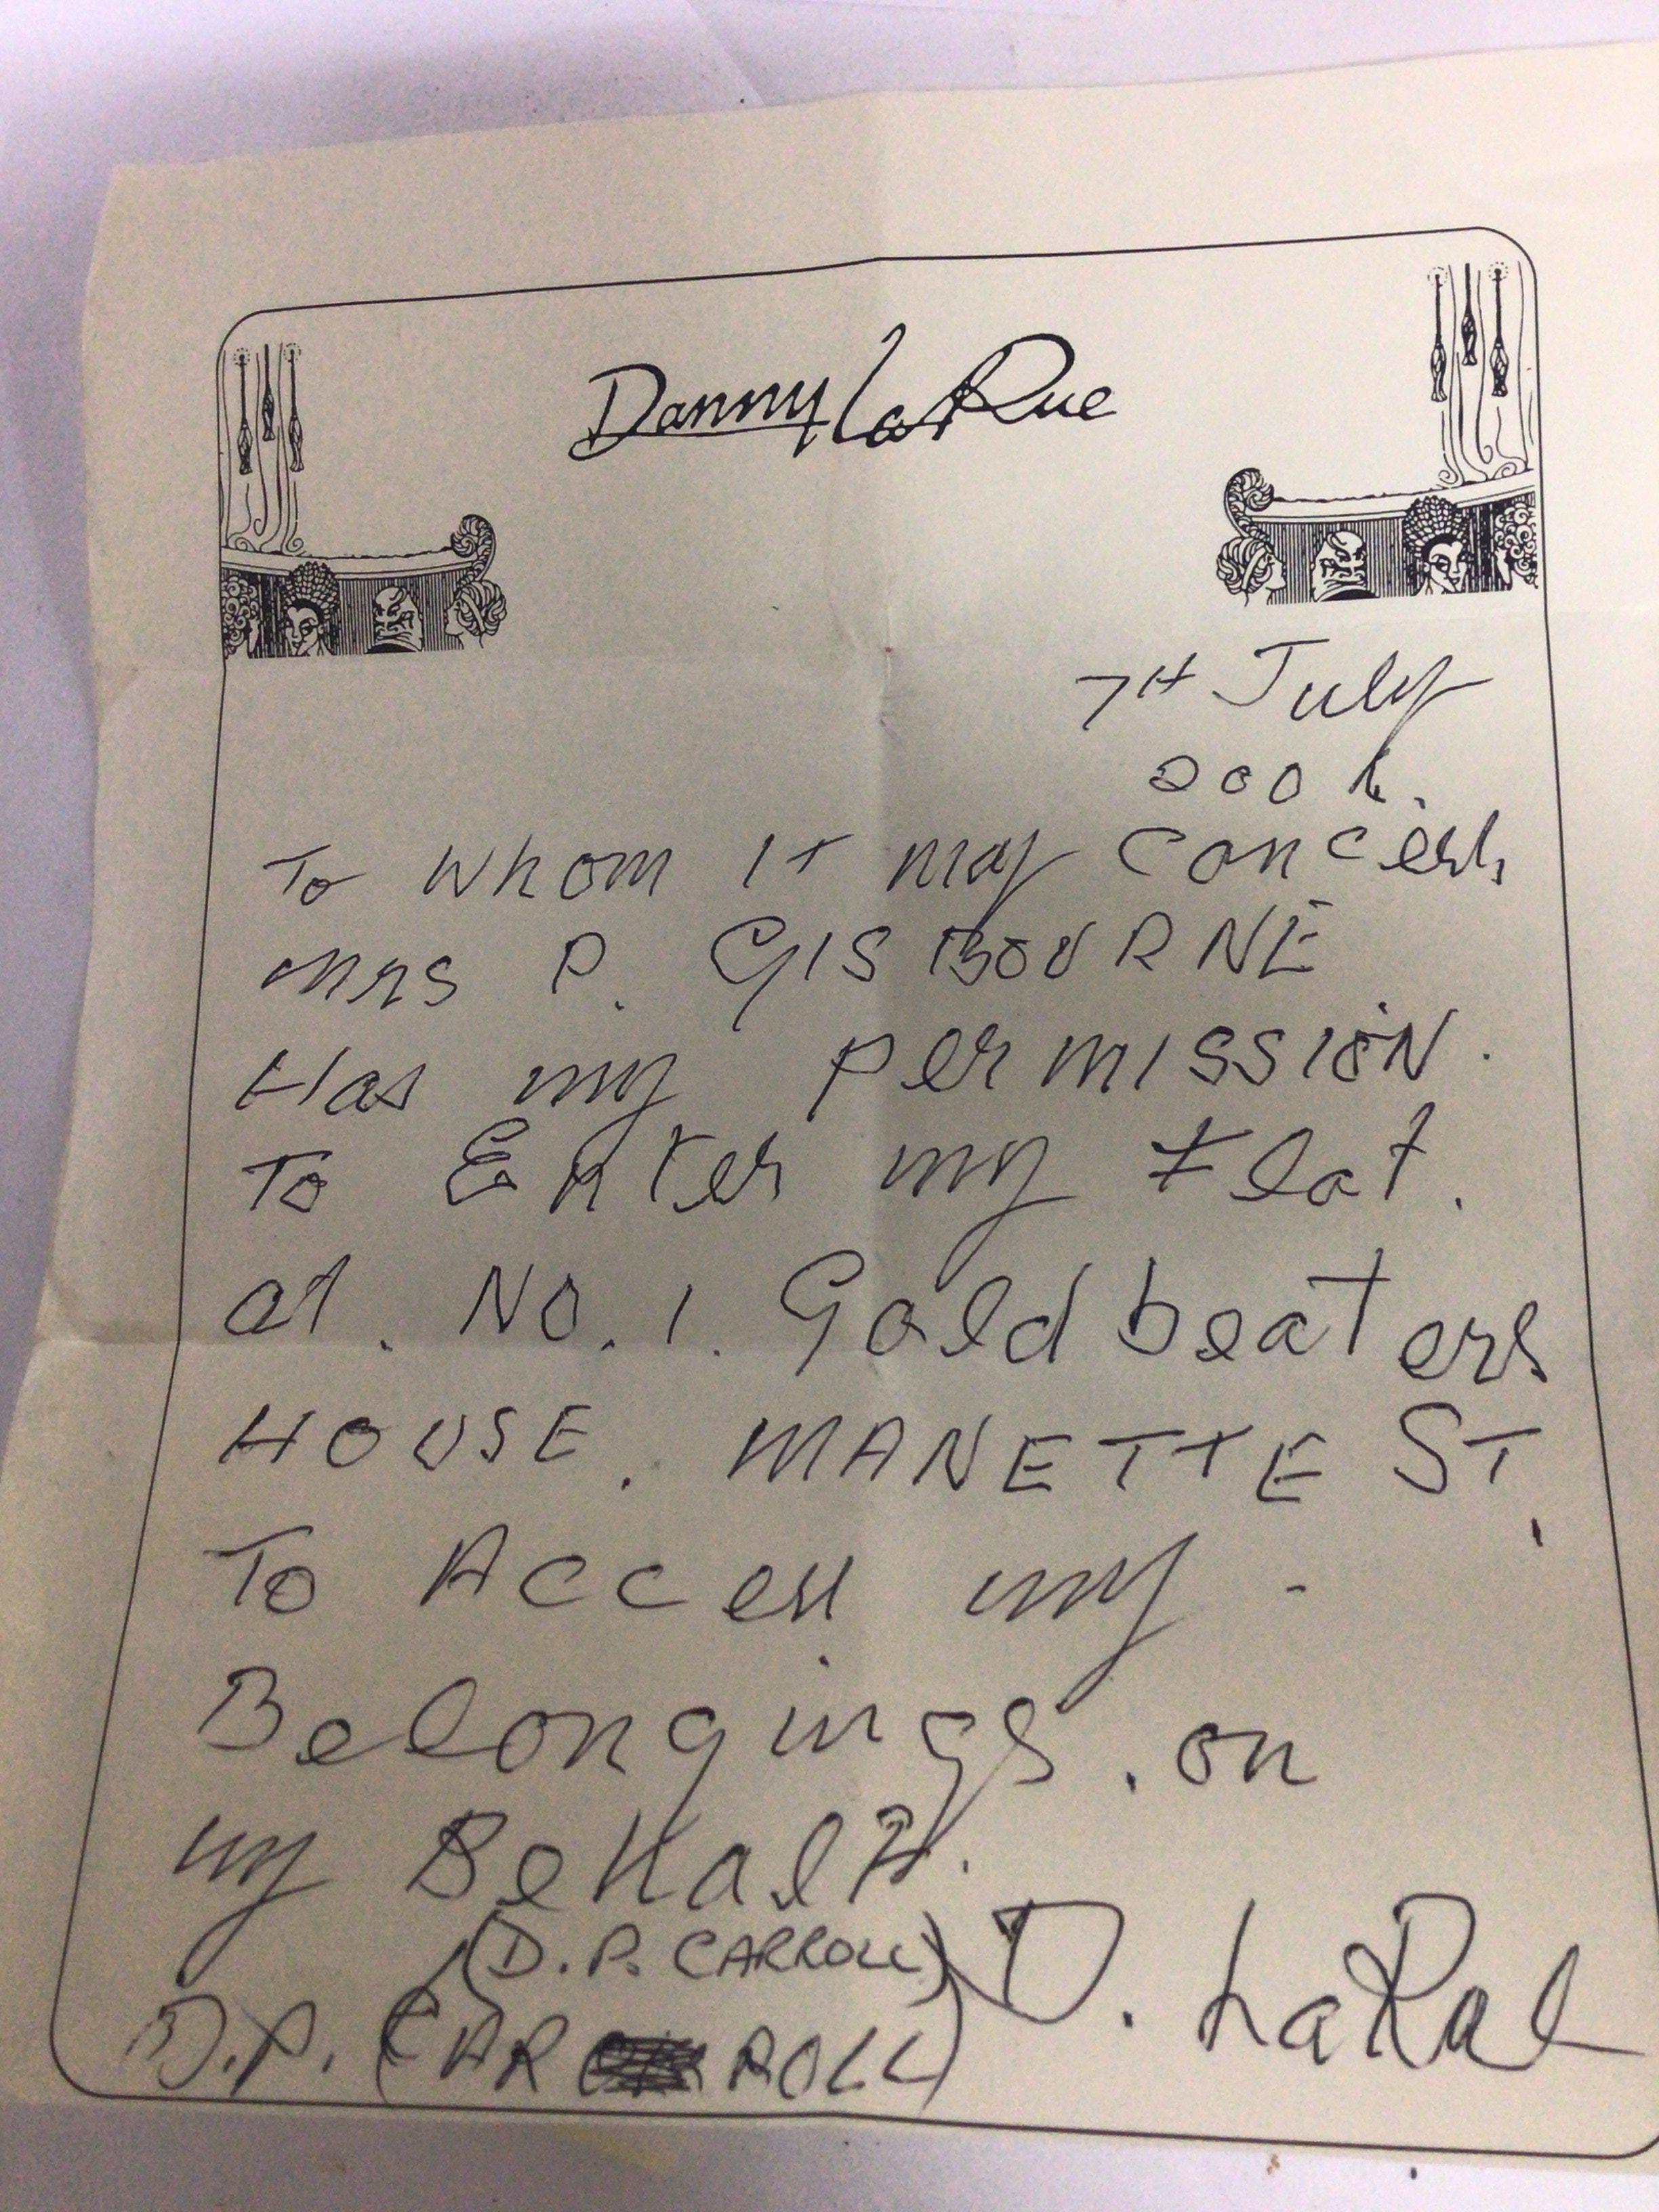 Danny La Rue
7TH July
To Whom IT may concern
Mrs P. GISBOURNE
Has my permISSION.
To Enter my Flat.
at. No. 1. Goldbeaters
HOUSE. MANETTE ST.
To Access my -
Belongings. on
my BeHalf.
(D. P. CARROLL) D. LaRue
D.P. (CAR ROLL)